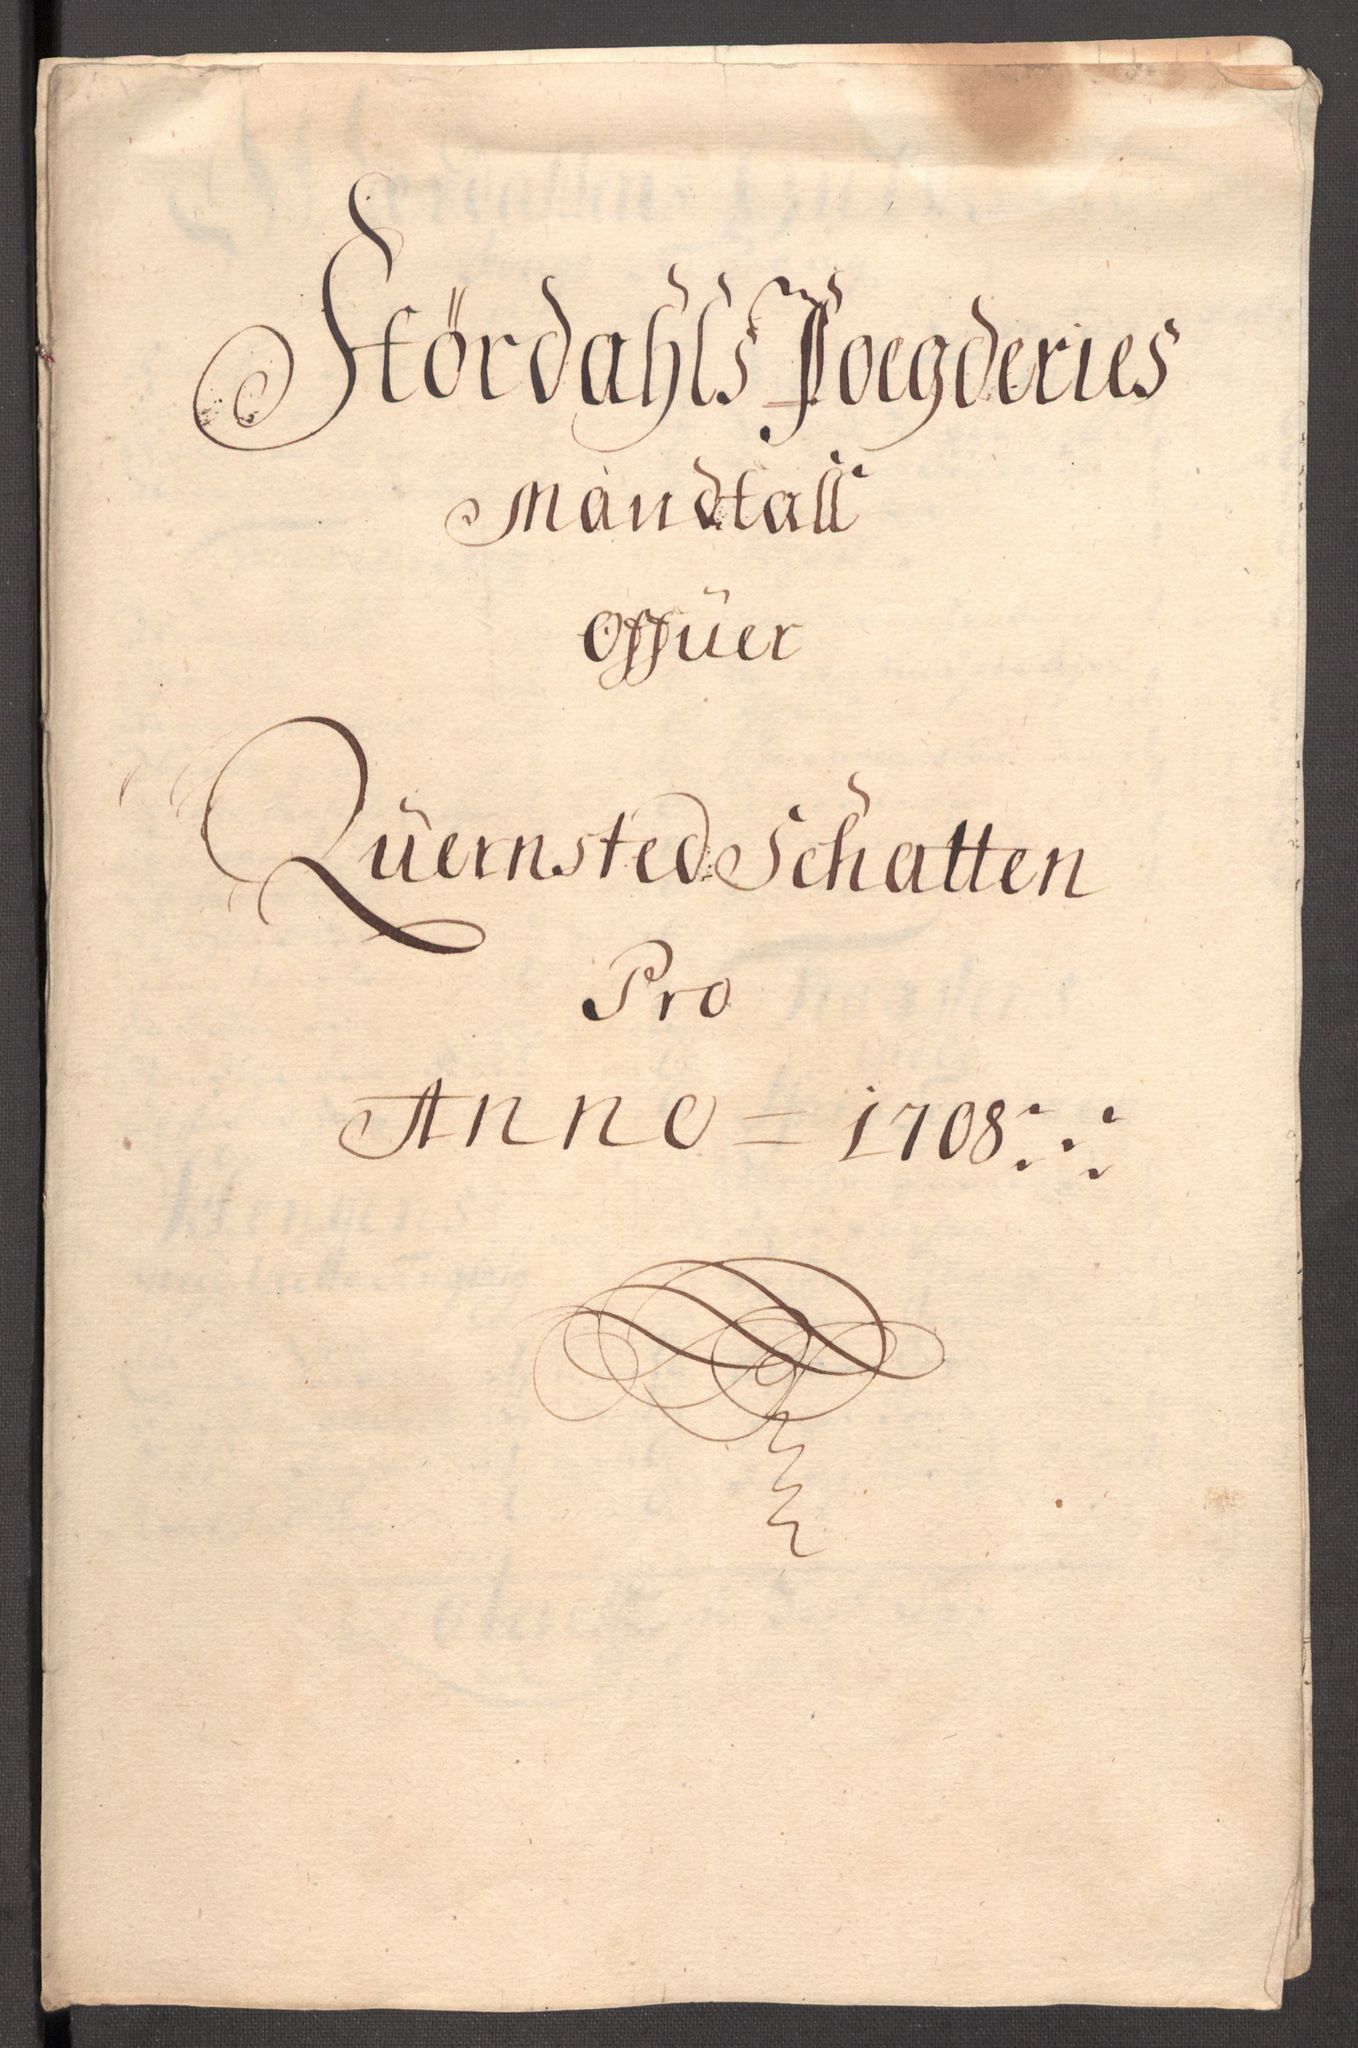 Stördahls Foegderies
Mandtall
Offüer
Qüernsted Schatten
Pro
Anno = 1708